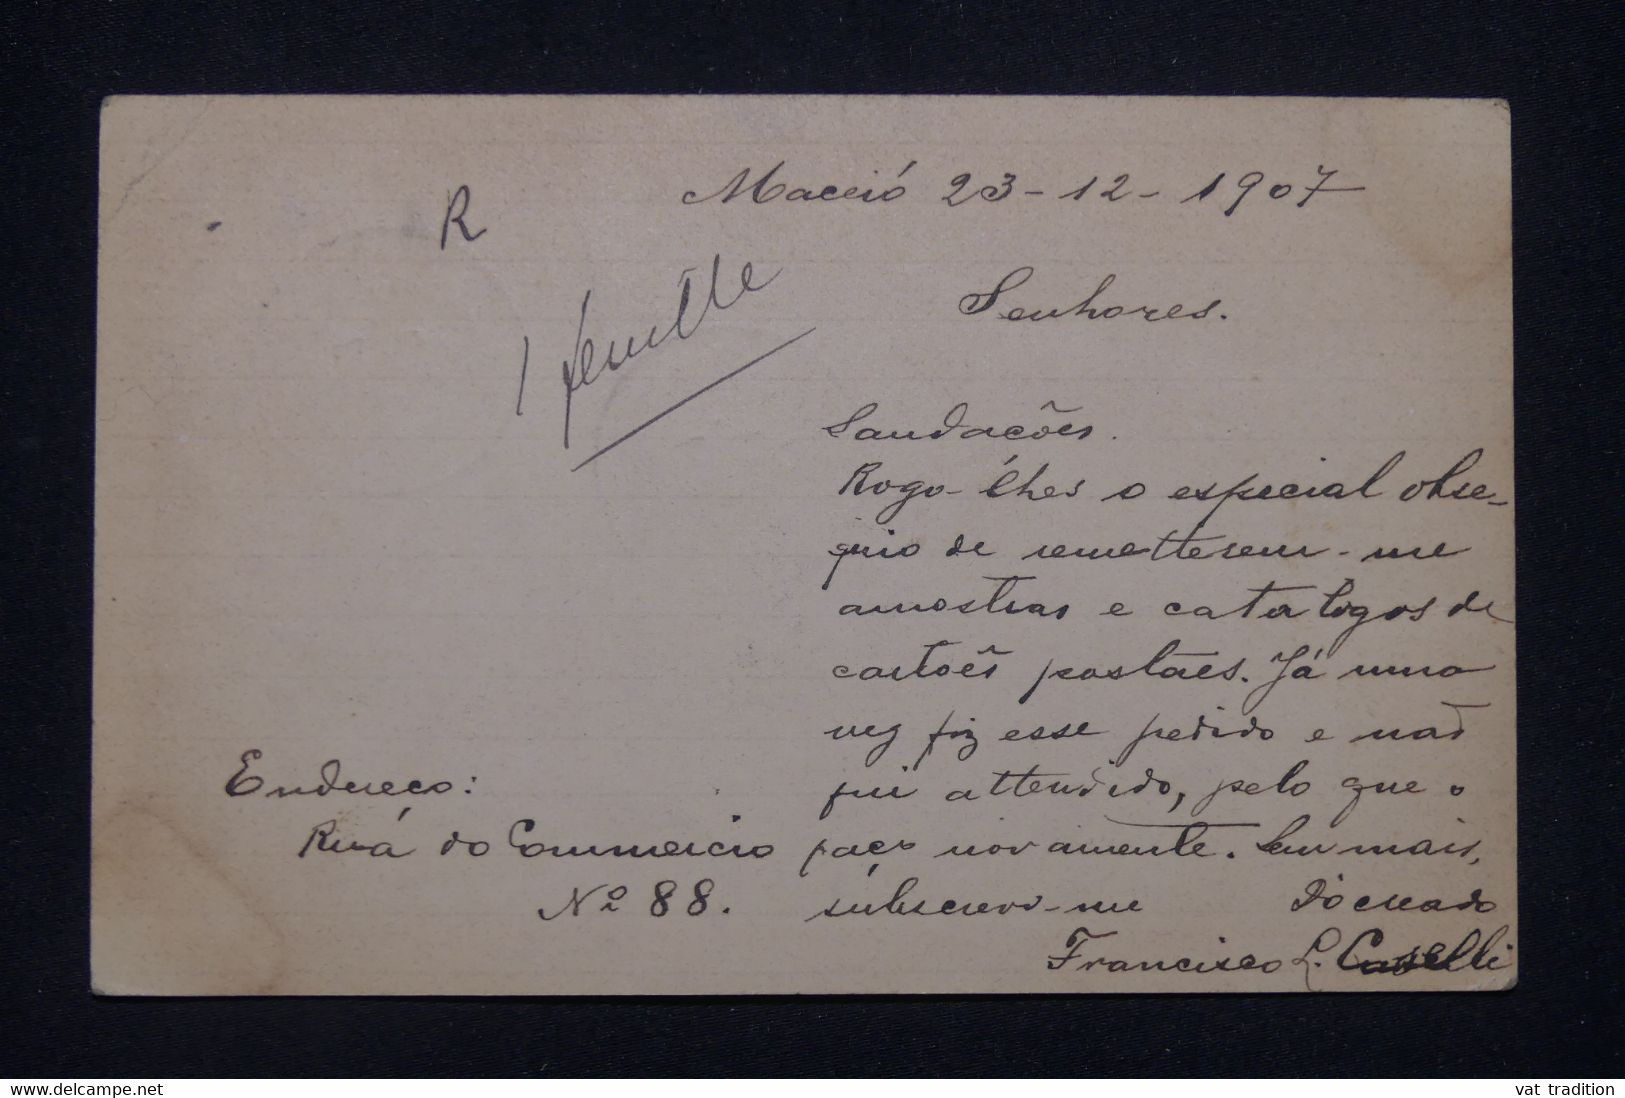 Maceió 23-12-1907
R
1 feuille
Senhores.
Saudacões.
Rogo-lhes o especial obse-
quio de remetterem-me
amostras e catalogos de
cartoẽs postaes. Já uma
vez fiz esse pedido e não
fui attendido, pelo que o
faço novamente. Sem mais,
subscrevo-me
Francisco L. Caselli
Endereco:
Ruá do Commercio
Nº 88.
www.delcampe.net
vat tradition